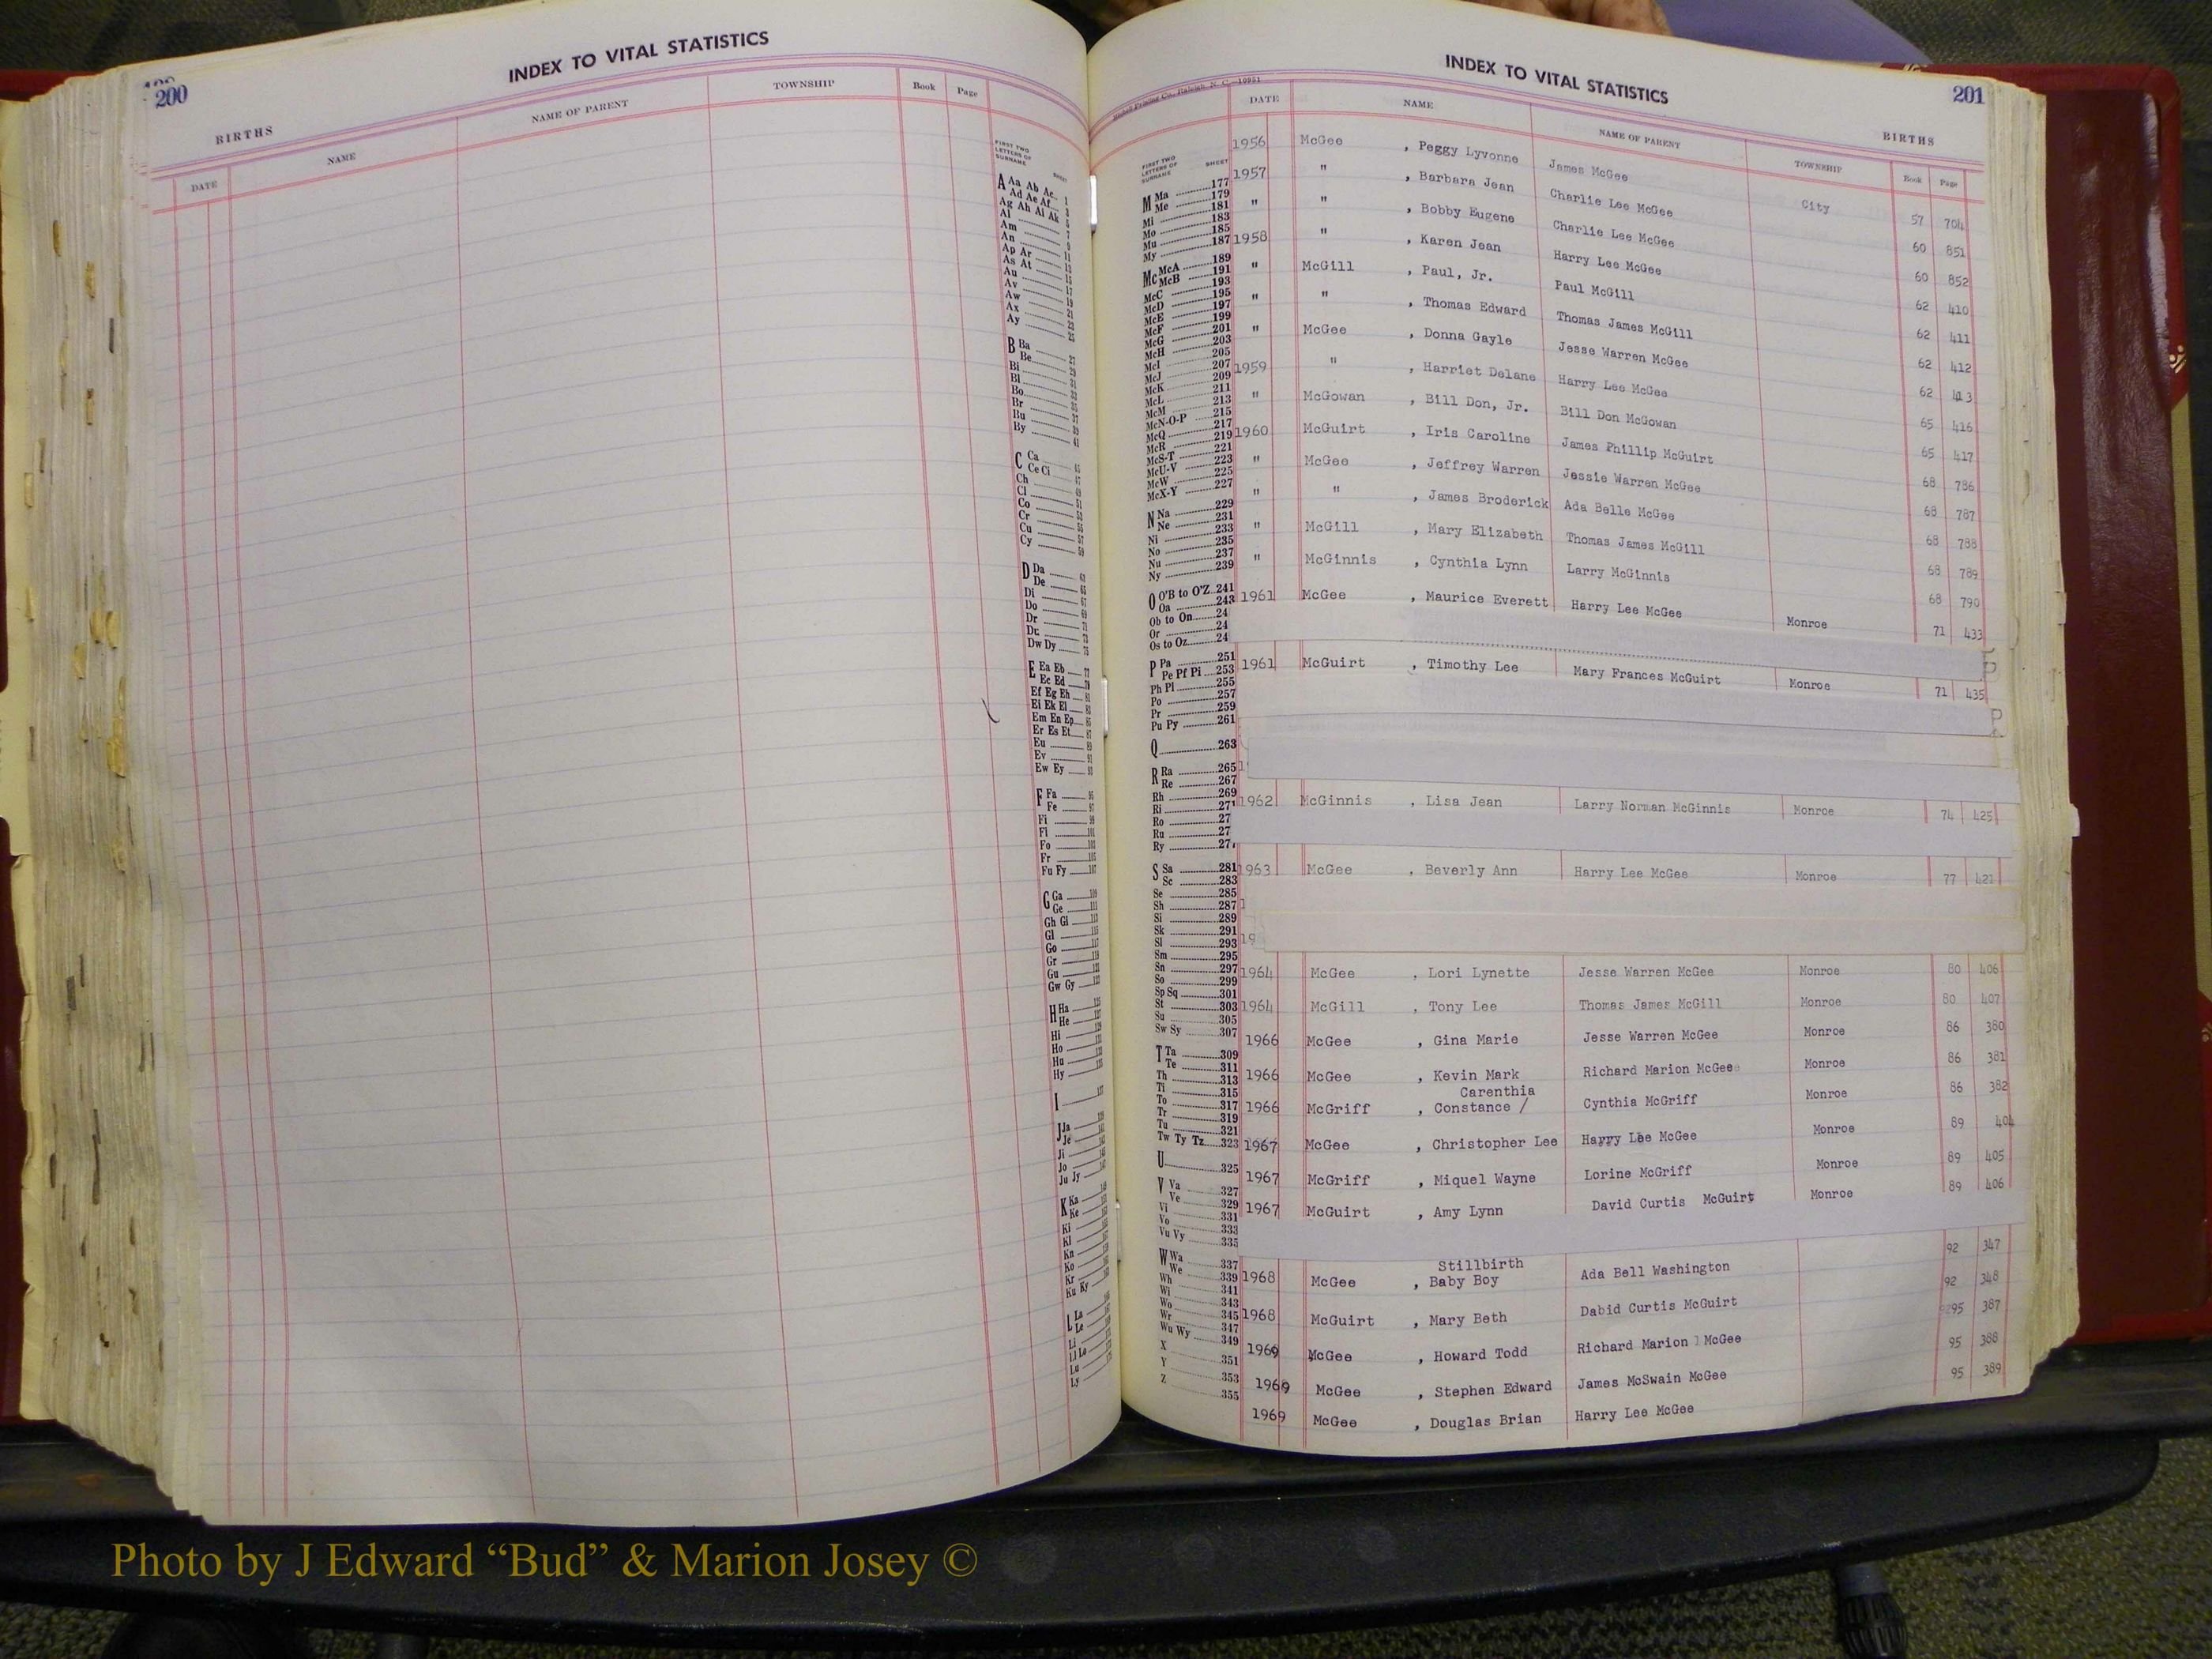 200
INDEX TO VITAL STATISTICS
BIRTHS
DATE NAME NAME OF PARENT TOWNSHIP Book Page
FIRST TWO LETTERS OF SURNAME SHEET
A Aa Ab Ac 1
Ad Ae Af 3
Ag Ah Ai Ak
Al
Am
An
Ap Ar
As At
Au
Av
Aw
Ax
Ay
B Ba
Be
Bi
Bl
Bo
Br
Bu
By
C Ca
Ce Ci
Ch
Cl
Co
Cr
Cu
Cy
D Da
De
Di
Do
Dr
Du
Dw Dy
E Ea Eb
Ec Ed
Ef Eg Eh
Ei Ek El
Em En Ep
Er Es Et
Eu
Ev
Ew Ey
F Fa
Fe
Fi
Fl
Fo
Fr
Fu Fy
G Ga
Ge
Gh Gi
Gl
Go
Gr
Gu
Gw Gy
H Ha
He
Hi
Ho
Hu
Hy
I
J Ja
Je
Ji
Jo
Ju Jy
K Ka
Ke
Ki
Kl
Kn
Ko
Kr
Ku Ky
L La
Le
Li
Ll Lo
Lu
Ly
INDEX TO VITAL STATISTICS
201
BIRTHS
DATE NAME NAME OF PARENT TOWNSHIP Book Page
FIRST TWO LETTERS OF SURNAME SHEET
M Ma 177
Me 179
Mi 181
Mo 183
Mu 185
My 187
Mc McA 189
McB 191
McC 193
McD 195
McE 197
McF 199
McG 201
McH 203
McI 205
McJ 207
McK 209
McL 211
McM 213
McN-O-P 215
McQ 217
McR 219
McS-T 221
McU-V 223
McW 225
McX-Y 227
N Na 229
Ne 231
Ni 233
No 235
Nu 237
Ny 239
O O'B to O'Z 241
Oa 243
Ob to On 24
Or 24
Os to Oz 24
P Pa 251
Pe Pf Pi 253
Ph Pl 255
Po 257
Pr 259
Pu Py 261
Q 263
R Ra 265
Re 267
Rh 269
Ri 271
Ro 27
Ru 27
Ry 27
S Sa 281
Sc 283
Se 285
Sh 287
Si 289
Sk 291
Sl 293
Sm 295
Sn 297
So 299
Sp Sq 301
St 303
Su 305
Sw Sy 307
T Ta 309
Te 311
Th 313
Ti 315
To 317
Tr 319
Tu 321
Tw Ty Tz 323
U 325
V Va 327
Ve 329
Vi 331
Vo 333
Vu Vy 335
W Wa 337
We 339
Wh 341
Wi 343
Wo 345
Wr 347
Wu Wy 349
X 351
Y 353
Z 355
1956 McGee , Peggy Lyvonne James McGee City 57 704
1957 " , Barbara Jean Charlie Lee McGee 60 851
" " , Bobby Eugene Charlie Lee McGee 60 852
1958 " , Karen Jean Harry Lee McGee 62 410
" McGill , Paul, Jr. Paul McGill 62 411
" " , Thomas Edward Thomas James McGill 62 412
" McGee , Donna Gayle Jesse Warren McGee 62 413
1959 " , Harriet Delane Harry Lee McGee 65 416
" McGowan , Bill Don, Jr. Bill Don McGowan 65 417
1960 McGuirt , Iris Caroline James Phillip McGuirt 68 786
" McGee , Jeffrey Warren Jessie Warren McGee 68 787
" " , James Broderick Ada Belle McGee 68 788
" McGill , Mary Elizabeth Thomas James McGill 68 789
" McGinnis , Cynthia Lynn Larry McGinnis 68 790
1961 McGee , Maurice Everett Harry Lee McGee Monroe 71 433
1961 McGuirt , Timothy Lee Mary Frances McGuirt Monroe 71 435
1962 McGinnis , Lisa Jean Larry Norman McGinnis Monroe 74 425
1963 McGee , Beverly Ann Harry Lee McGee Monroe 77 421
19
1964 McGee , Lori Lynette Jesse Warren McGee Monroe 80 406
1964 McGill , Tony Lee Thomas James McGill Monroe 80 407
1966 McGee , Gina Marie Jesse Warren McGee Monroe 86 380
1966 McGee , Kevin Mark Richard Marion McGee Monroe 86 381
Carenthia
1966 McGriff , Constance / Cynthia McGriff Monroe 86 382
1967 McGee , Christopher Lee Harry Lee McGee Monroe 89 404
1967 McGriff , Miquel Wayne Lorine McGriff Monroe 89 405
1967 McGuirt , Amy Lynn David Curtis McGuirt Monroe 89 406
Stillbirth
1968 McGee , Baby Boy Ada Bell Washington 92 347
1968 McGuirt , Mary Beth Dabid Curtis McGuirt 92 348
1969 McGee , Howard Todd Richard Marion McGee 95 387
1969 McGee , Stephen Edward James McSwain McGee 95 388
1969 McGee , Douglas Brian Harry Lee McGee 95 389
Photo by J Edward “Bud” & Marion Josey ©